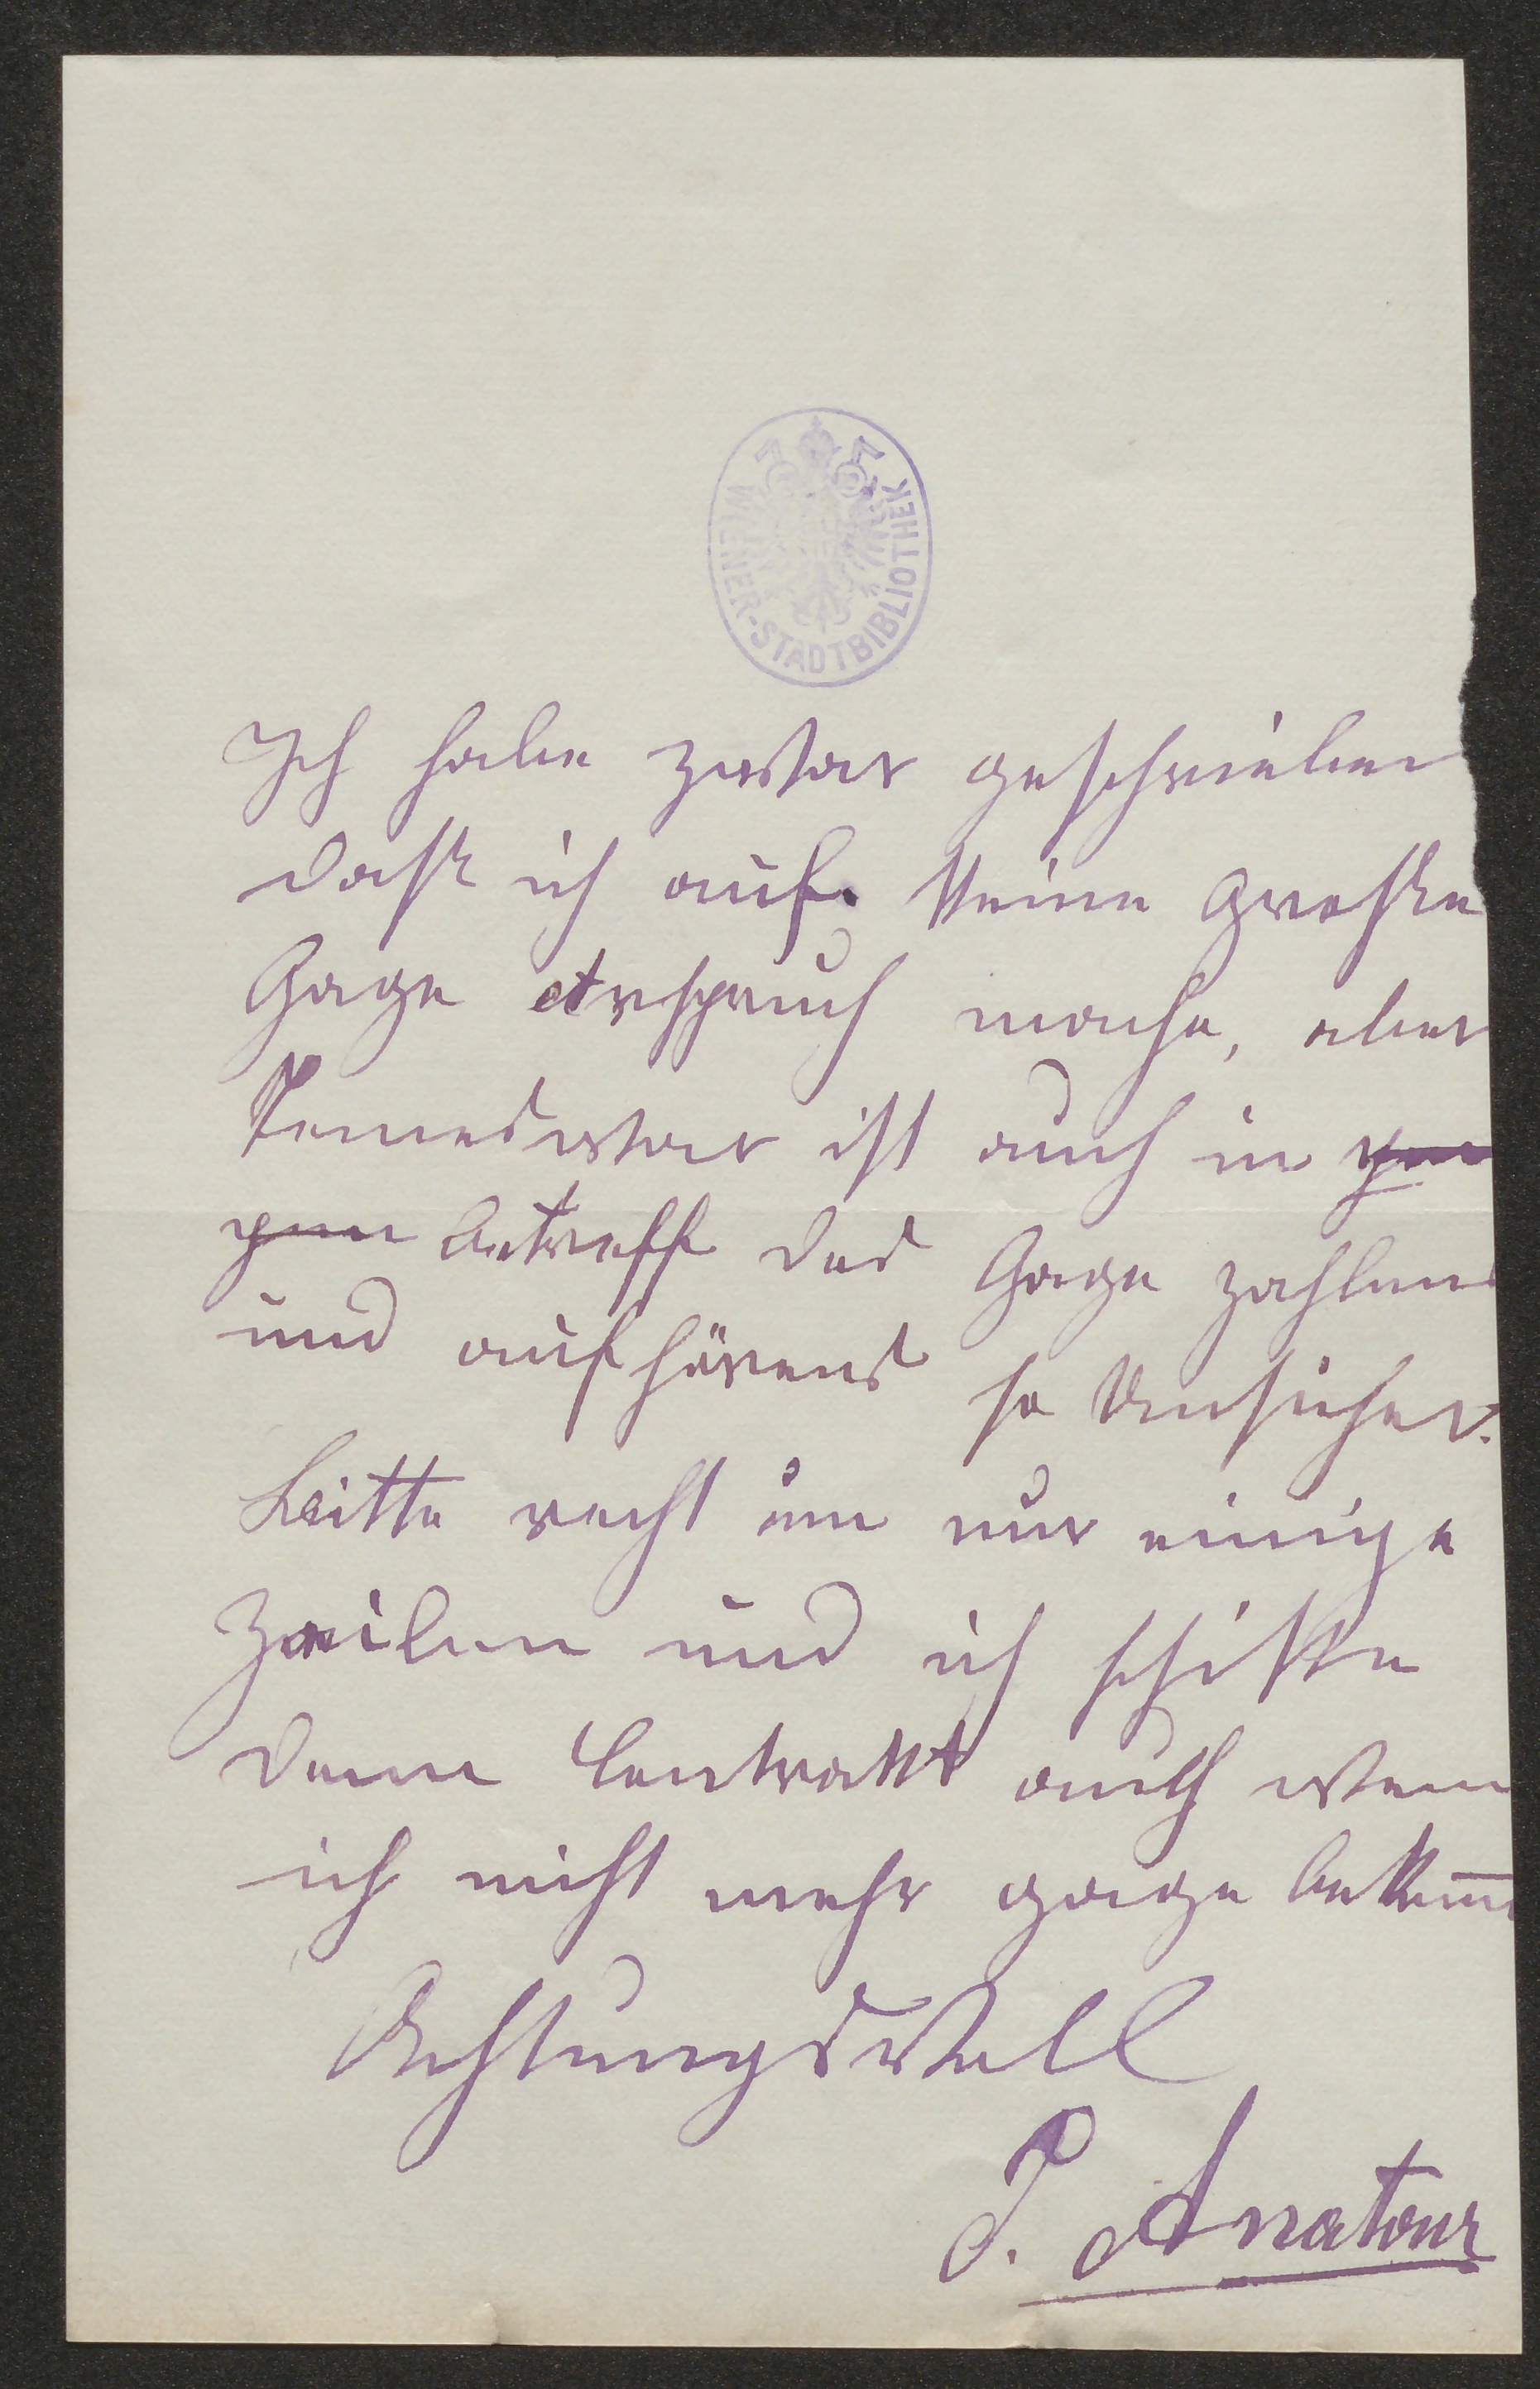 WIENER-STADTBIBLIOTHEK
Ich habe zwar geschrieben
dass ich auf keine grosse
Gage Anspruch mache, aber
Temeswar ist auch in
betreff des Gage zahlens
und aufhörens so unsicher.
Bitte recht um nur einige
Zeilen und ich schikke
denn Contrakt auch wenn
ich nicht mehr gage bekom̄e
Achtungsvoll
J. Anatour